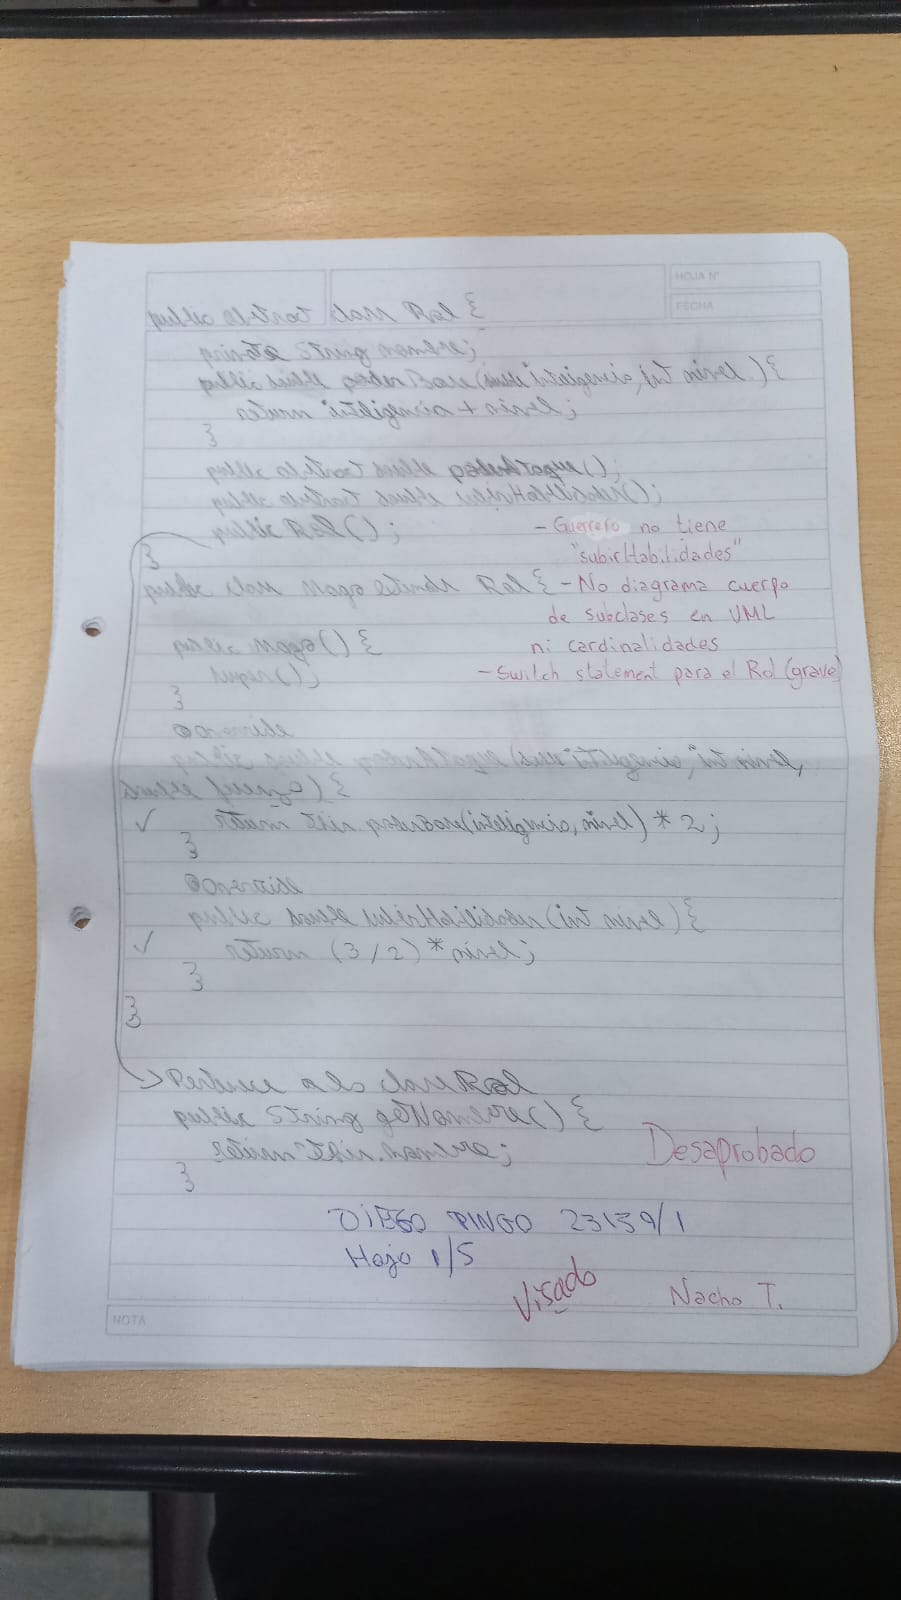 HOJA N°
FECHA
public abstract class Rol {
private String nombre;
public double poderBase(double inteligencia, int nivel) {
return inteligencia + nivel;
}
public abstract double poderAtaque();
public abstract double subirHabilidades();
public Rol();
- Guerrero no tiene
"subirHabilidades"
}
public class Mago extends Rol {
- No diagrama cuerpo
de subclases en UML
ni cardinalidades
- Switch statement para el Rol (grave)
public Mago() {
super();
}
@Override
public double poderAtaque(double inteligencia, int nivel,
double fuerza) {
return this.poderBase(inteligencia, nivel) * 2;
}
@Override
public double subirHabilidades(int nivel) {
return (3/2) * nivel;
}
}
→ Pertenece a la clase Rol
public String getNombre() {
return this.nombre;
}
Desaprobado
DIEGO PINGO 23159/1
Hoja 1/5
Visado
Nacho T.
NOTA